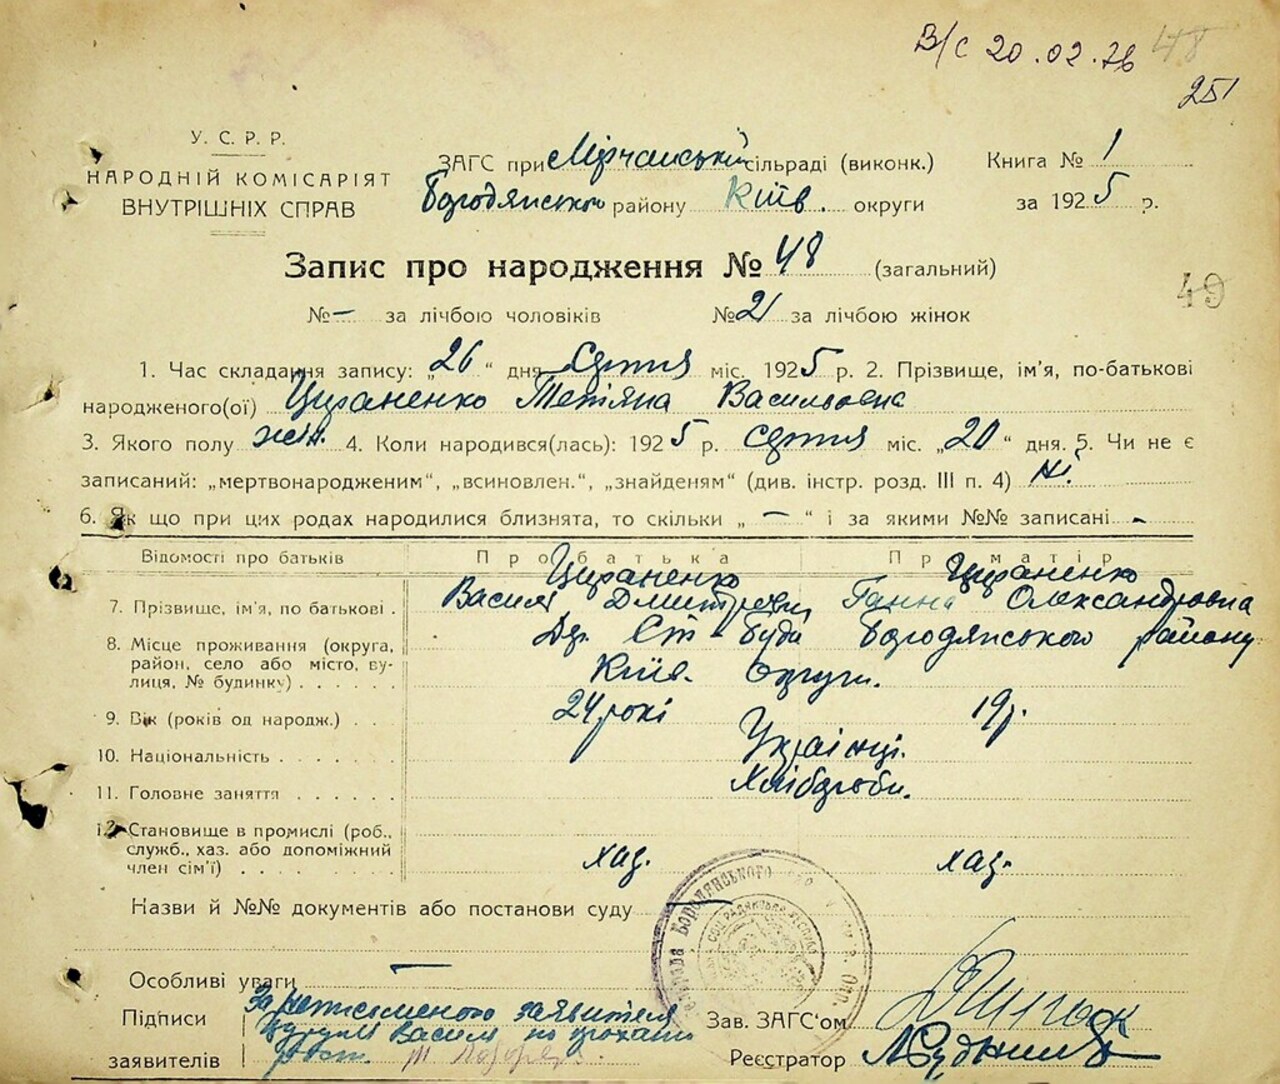 В/С 20.02.76 48
251
У. С. Р. Р.
НАРОДНІЙ КОМІСАРІЯТ
ВНУТРІШНІХ СПРАВ
ЗАГС при Мірчанській сільраді (виконк.) Книга № 1
Бородянського району Київ. округи за 1925 р.
Запис про народження № 48 (загальний)
49
№ — за лічбою чоловіків № 21 за лічбою жінок
1. Час складання запису: „26“ дня Серпня міс. 1925 р. 2. Прізвище, ім'я, по-батькові
народженого(ої) Цираненко Тетіяна Васильовна
3. Якого полу жін. 4. Коли народився(лась): 1925 р. серпня міс. „20“ дня. 5. Чи не є
записаний: „мертвонародженим“, „всиновлен.“, „знайденям“ (див. інстр. розд. III п. 4) Ні.
6. Як що при цих родах народилися близнята, то скільки „—“ і за якими №№ записані -
Відомості про батьків Про батька Про матір
Цираненко Цираненко
7. Прізвище, ім'я, по батькові . Василь Дмитрович Ганна Олександровна
8. Місце проживання (округа, район, село або місто, ву-
лиця, № будинку) . . . . . . Буда Бородянського району
Київ. округи.
9. Вік (років од народж.) . . 24 рокі 19 р.
10. Національність . . . . . . . Українці.
11. Головне заняття . . . . . . Хлібороби.
12. Становище в промислі (роб.,
служб., хаз. або допоміжний
член сім'ї) . . . . . . . . хаз. хаз.
Назви й №№ документів або постанови суду —
Особливі уваги —
Підписи За неписьменого заявителя
Василя по прохані
заявителів
Зав. ЗАГС'ом
Реєстратор
Бородянського